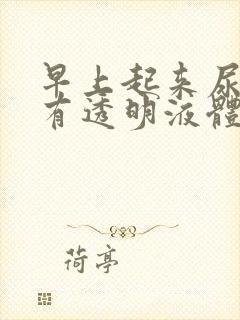 早上起来尿
有透明液體
荷亭